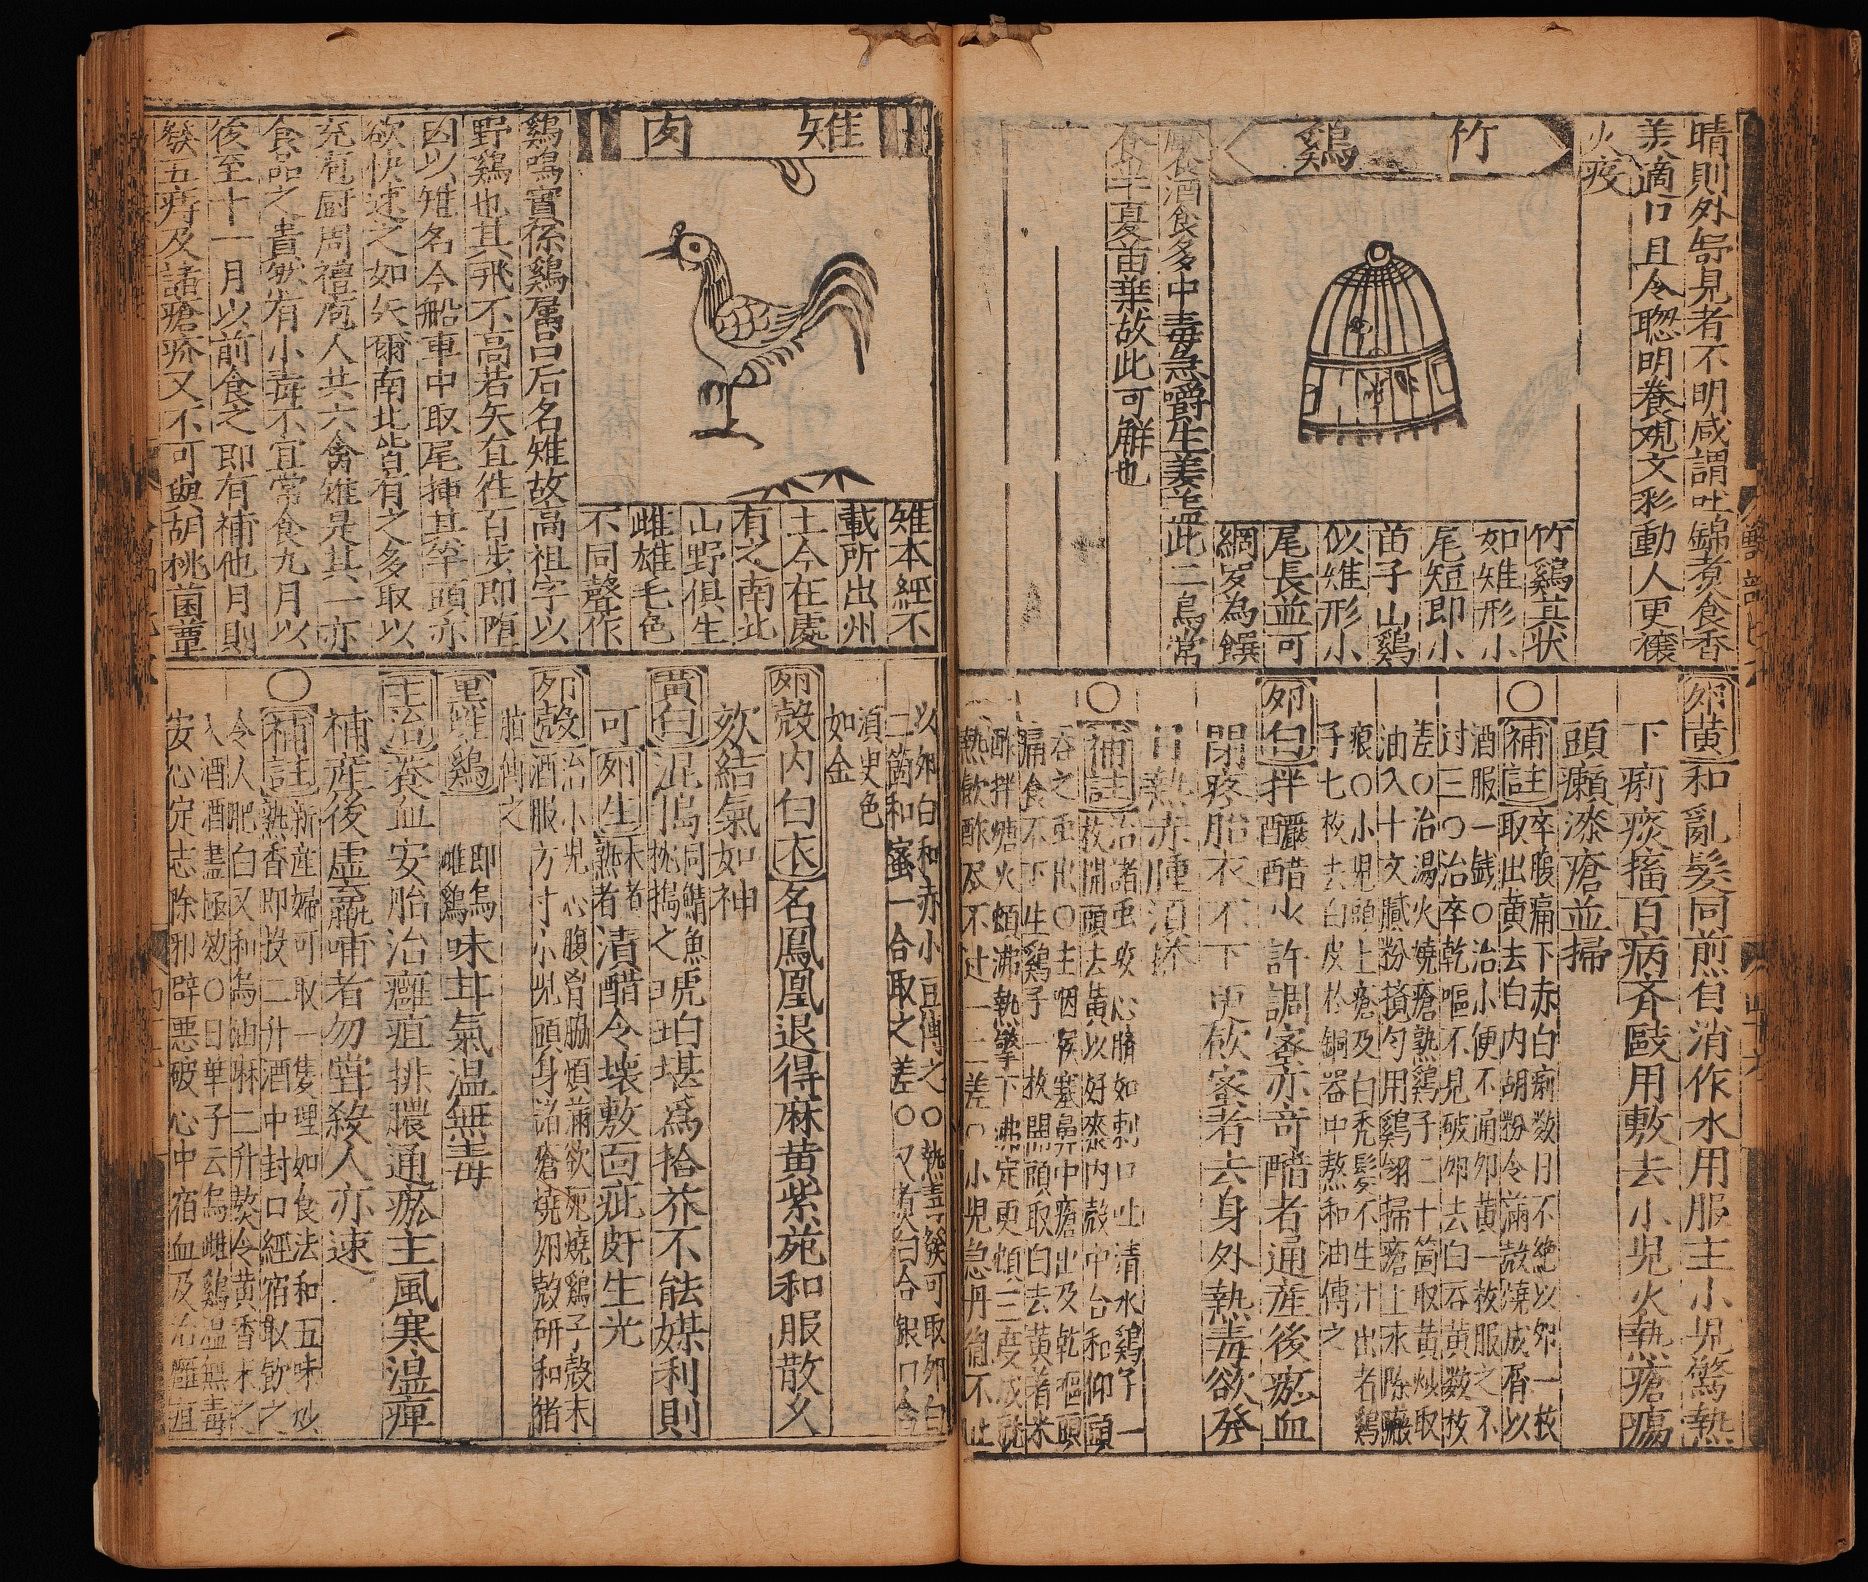 晴則外㝵見者不明咸謂吐錦煮食香
美適口且令聦明養觀文彩動人更禳
火疫
竹鷄
竹鷄其状
如雉形小
尾短即小
苗子山鷄
似雉形小
尾長並可
網羅為饌
食酒食多中毒急嚼生姜盖此二鳥常
食半夏苗葉故此可解也
雉肉
雉本經不
載所出州
土今在處
有之南北
山野俱生
雌雄毛色
不同聲作
鷄鳴實係鷄属吕后名雉故高祖字以
野鷄也其飛不高若矢直徃百步即堕
因以雉名今船車中取尾挿其竿頭亦
欲快速之如矢爾南北皆有之多取以
充庖厨周禮庖人共六禽雉是其一亦
食品之貴然有小毒不宜常食九月以
後至十一月以前食之即有補他月則
發五痔及諸瘡疥又不可與胡桃菌蕈
卵黄和亂髪同煎自消作水用服主小児驚熱
下痢痰搐百病斉敺用敷去小児火熱瘡瘍
頭癩漆瘡並掃
○補註卒腹痛下赤白痢数日不絶以卵一枚
取出黄去白内胡粉令滿殼燒成屑以
酒服一銭○治小便不通卵黄一枚服之不
过三○治卒乾嘔不見破卵去白吞黄数枚
差○治湯火燒瘡熟鷄子二十箇取黄炒取
油入十文膩粉攪匀用鷄翎掃瘡上永除瘢
痕○小児頭上瘡及白禿髪不生汁出者鷄
子七枚去白皮於銅器中熬和油傅之
卵白拌釅醋水許調宻亦竒醋者通産後瘀血
閉疼胎衣不下更砍宻者去身外熱毒欲發
目熱赤腫須搽
○補註治諸虫攻心臍如刺口吐清水鷄子一
枚開頭去黄以好漆内殼中合和仰頭
吞之虫出○主咽喉塞鼻中瘡出及乾嘔頭
痛食不下生鷄子一枚開頭取白去黄着米
酢拌煻火頓沸熱擎下沸定更頓三度成就
熱飲酢尽不过一二差○小児急丹徧不止
以卵白和赤小豆傅之○熟煮髮可取卵白
二箇和蜜一合取之差○又煮白合銀口含
湏臾色
如金
卵殼内白衣名鳳凰退得麻黄紫菀和服散久
欬結氣如神
黄白混搗同鯖魚枕搗之琥珀堪為拾芥不能媒利則
可卵生未者熟者漬醋令壞敷面疵皯生光
卵殼治小児心腹胷脇煩滿欲死燒鷄子殼末
酒服方寸小児頭身諸瘡燒卵殼研和猪
脂傅之
黒雌鷄即烏雌鷄味甘氣温無毒
主治養血安胎治癰疽排膿通瘀主風寒温痺
補産後虚羸哺者勿嘗殺人亦速
○補註新産婦可取一隻理如食法和五味炒
熟香即投二升酒中封口經宿取飲之
令人肥白又和烏油麻二升熬令黄香末之
入酒酒盡極效○日華子云烏雌鷄温無毒
安心定志除邪辟悪破心中宿血及治癰疽